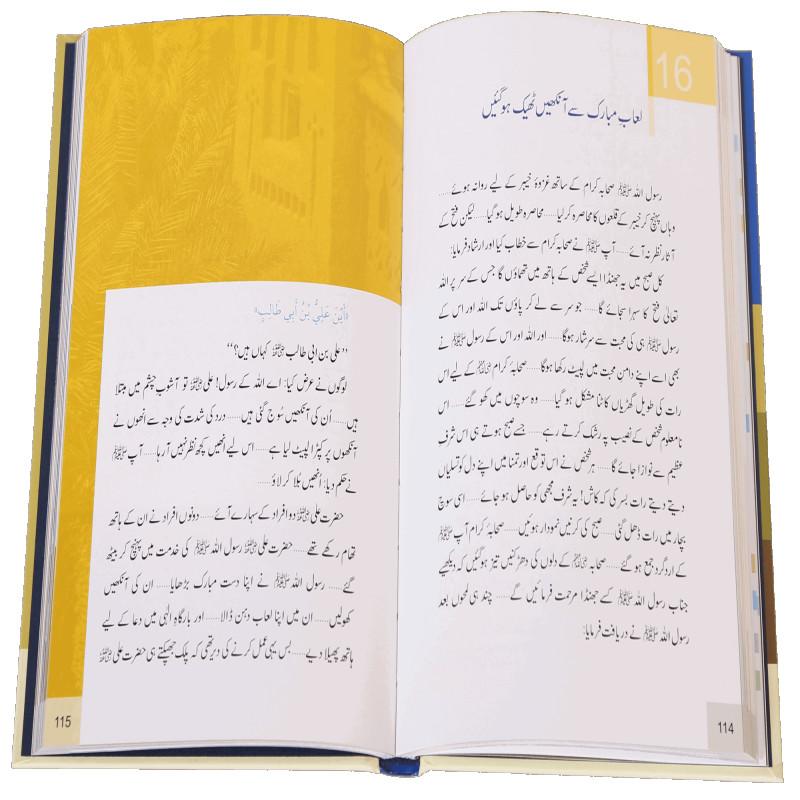 16
لعابِ مبارک سے آنکھیں ٹھیک ہوگئیں
رسول اللہ ﷺ صحابہ کرام کے ساتھ غزوۂ خیبر کے لیے روانہ ہوئے......
وہاں پہنچ کر خیبر کے قلعوں کا محاصرہ کر لیا...... محاصرہ طویل ہو گیا...... لیکن فتح کے
آثار نظر نہ آئے...... آپ ﷺ نے صحابہ کرام سے خطاب کیا اور ارشاد فرمایا:
کل صبح میں یہ جھنڈا ایسے شخص کے ہاتھ میں تھماؤں گا جس کے سر پر اللہ
تعالیٰ فتح کا سہرا سجائے گا...... جو سر سے لے کر پاؤں تک اللہ اور اس کے
رسول ﷺ ہی کی محبت سے سرشار ہوگا...... اور اللہ اور اس کے رسول ﷺ نے
بھی اسے اپنے دامنِ محبت میں لپیٹ رکھا ہوگا...... صحابہ کرام ﷢ کے لیے اس
رات کی طویل گھڑیاں کاٹنا مشکل ہو گیا...... وہ سوچوں میں کھو گئے...... اس
نامعلوم شخص کے نصیب پر رشک کرتے رہے...... جسے صبح ہوتے ہی اس شرفِ
عظیم سے نوازا جائے گا...... ہر شخص نے اس توقع اور تمنا میں اپنے دل کو تسلیاں
دیتے دیتے رات بسر کی کہ کاش! یہ شرف مجھی کو حاصل ہو جائے...... اسی سوچ
بچار میں رات ڈھل گئی...... صبح کی کرنیں نمودار ہوئیں...... صحابہ کرام آپ ﷺ
کے اردگرد جمع ہو گئے...... صحابہ ﷢ کے دلوں کی دھڑکنیں تیز ہو گئیں کہ دیکھیے
جناب رسول اللہ ﷺ کسے جھنڈا مرحمت فرمائیں گے...... چند ہی لمحوں بعد
رسول اللہ ﷺ نے دریافت فرمایا:
114
«أَيْنَ عَلِيُّ بْنُ أَبِي طَالِبٍ»
”علی بن ابی طالب ﷜ کہاں ہیں؟“
لوگوں نے عرض کیا: اے اللہ کے رسول! علی ﷜ تو آشوبِ چشم میں مبتلا
ہیں...... اُن کی آنکھیں سُوج گئی ہیں...... درد کی شدت کی وجہ سے انھوں نے
آنکھوں پر کپڑا لپیٹ لیا ہے...... اس لیے انھیں کچھ نظر نہیں آ رہا...... آپ ﷺ
نے حکم دیا: انھیں بُلا کر لاؤ......
حضرت علی ﷜ دو افراد کے سہارے آئے...... دونوں افراد نے ان کے ہاتھ
تھام رکھے تھے...... حضرت علی ﷜ رسول اللہ ﷺ کی خدمت میں پہنچ کر بیٹھ
گئے...... رسول اللہ ﷺ نے اپنا دست مبارک بڑھایا...... ان کی آنکھیں
کھولیں...... ان میں اپنا لعاب دہن ڈالا...... اور بارگاہِ الٰہی میں دعا کے لیے
ہاتھ پھیلا دیے...... بس یہی عمل کرنے کی دیر تھی کہ پلک جھپکتے ہی حضرت علی ﷜
115